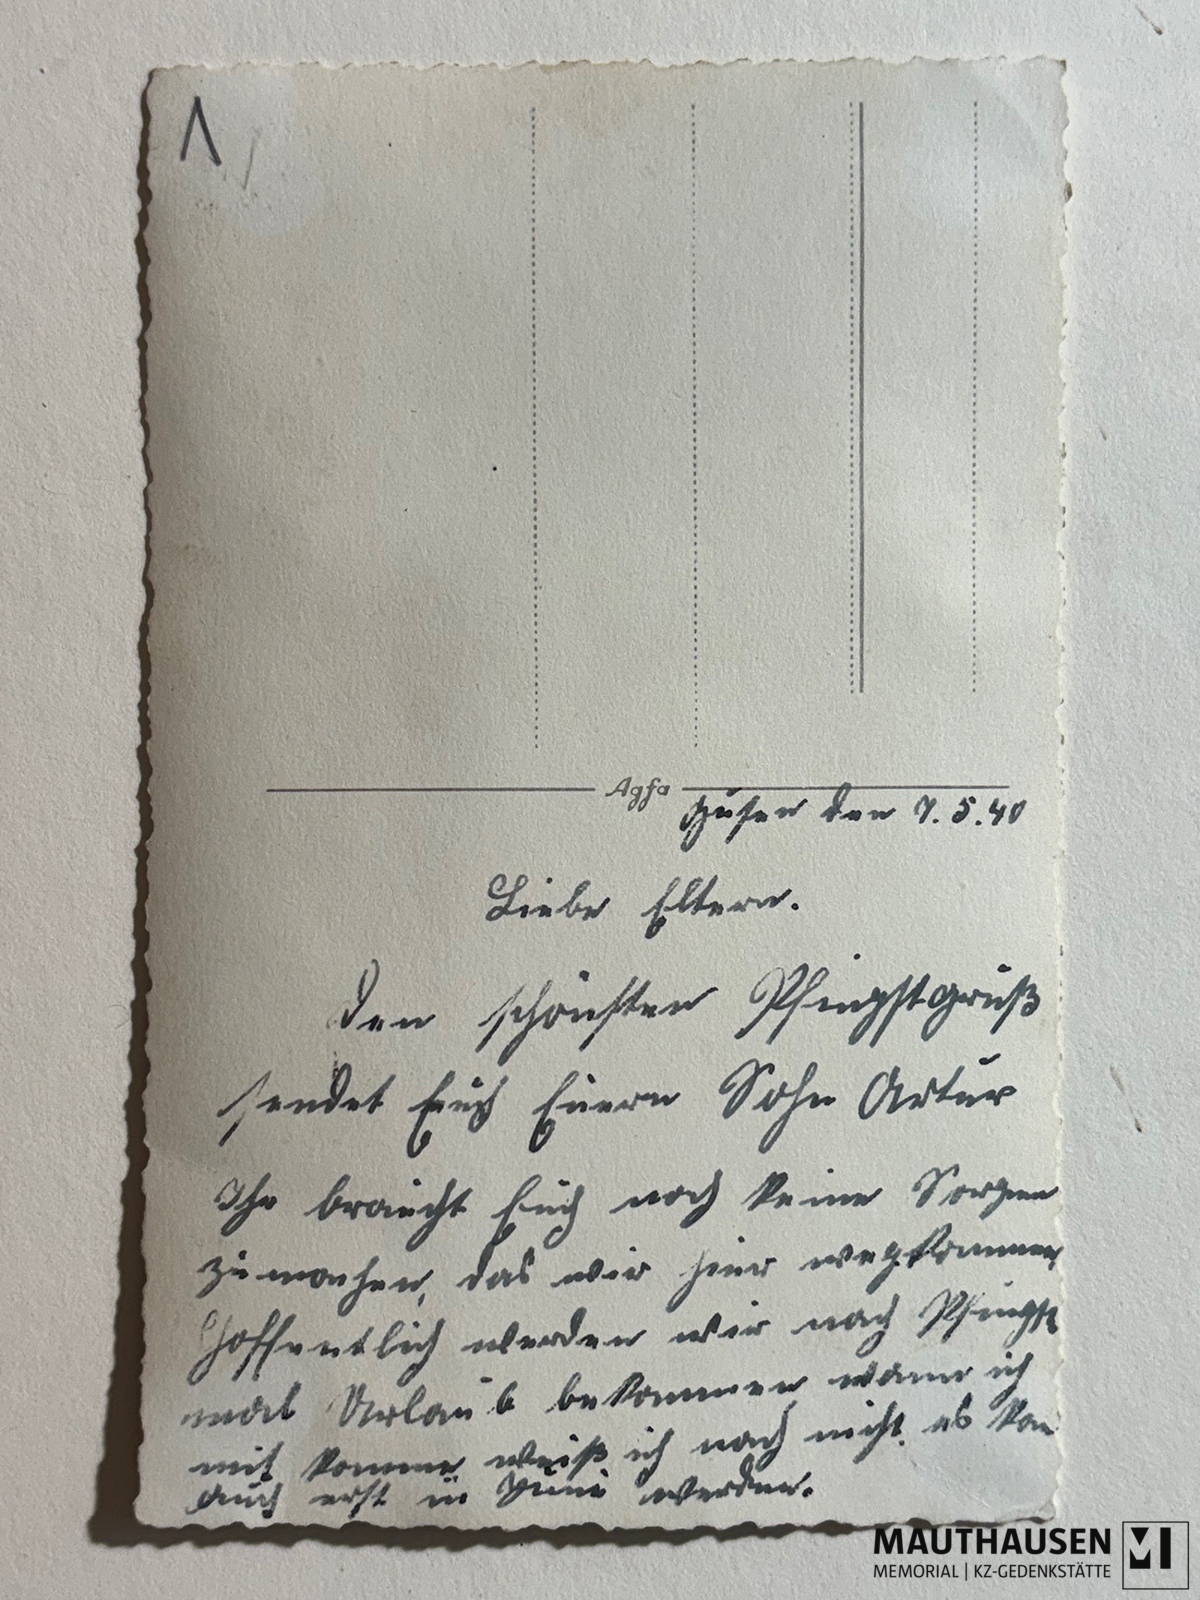 Agfa
Gusen den 7. 5. 40
Liebe Eltern.
Den schönsten Pfingstgruß
sendet Euch Euern Sohn Artur
Ihr braucht Euch noch keine Sorgen
zu machen, das wir hier wegkommen
Hoffentlich werden wir nach Pfingst
mal Urlaub bekommen, wann ich
mit komme weiß ich noch nicht. es kan
auch erst in Juni werden.
MAUTHAUSEN
MEMORIAL | KZ-GEDENKSTÄTTE